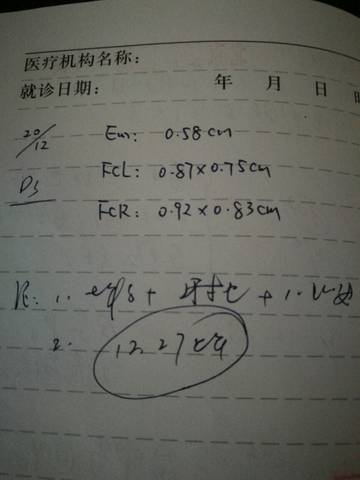 医疗机构名称：
就诊日期： 年 月 日 时
20/12 Em: 0.58cm
D3 FCL: 0.87×0.75cm
FCR: 0.92×0.83cm
R: 1.
2. 12.27